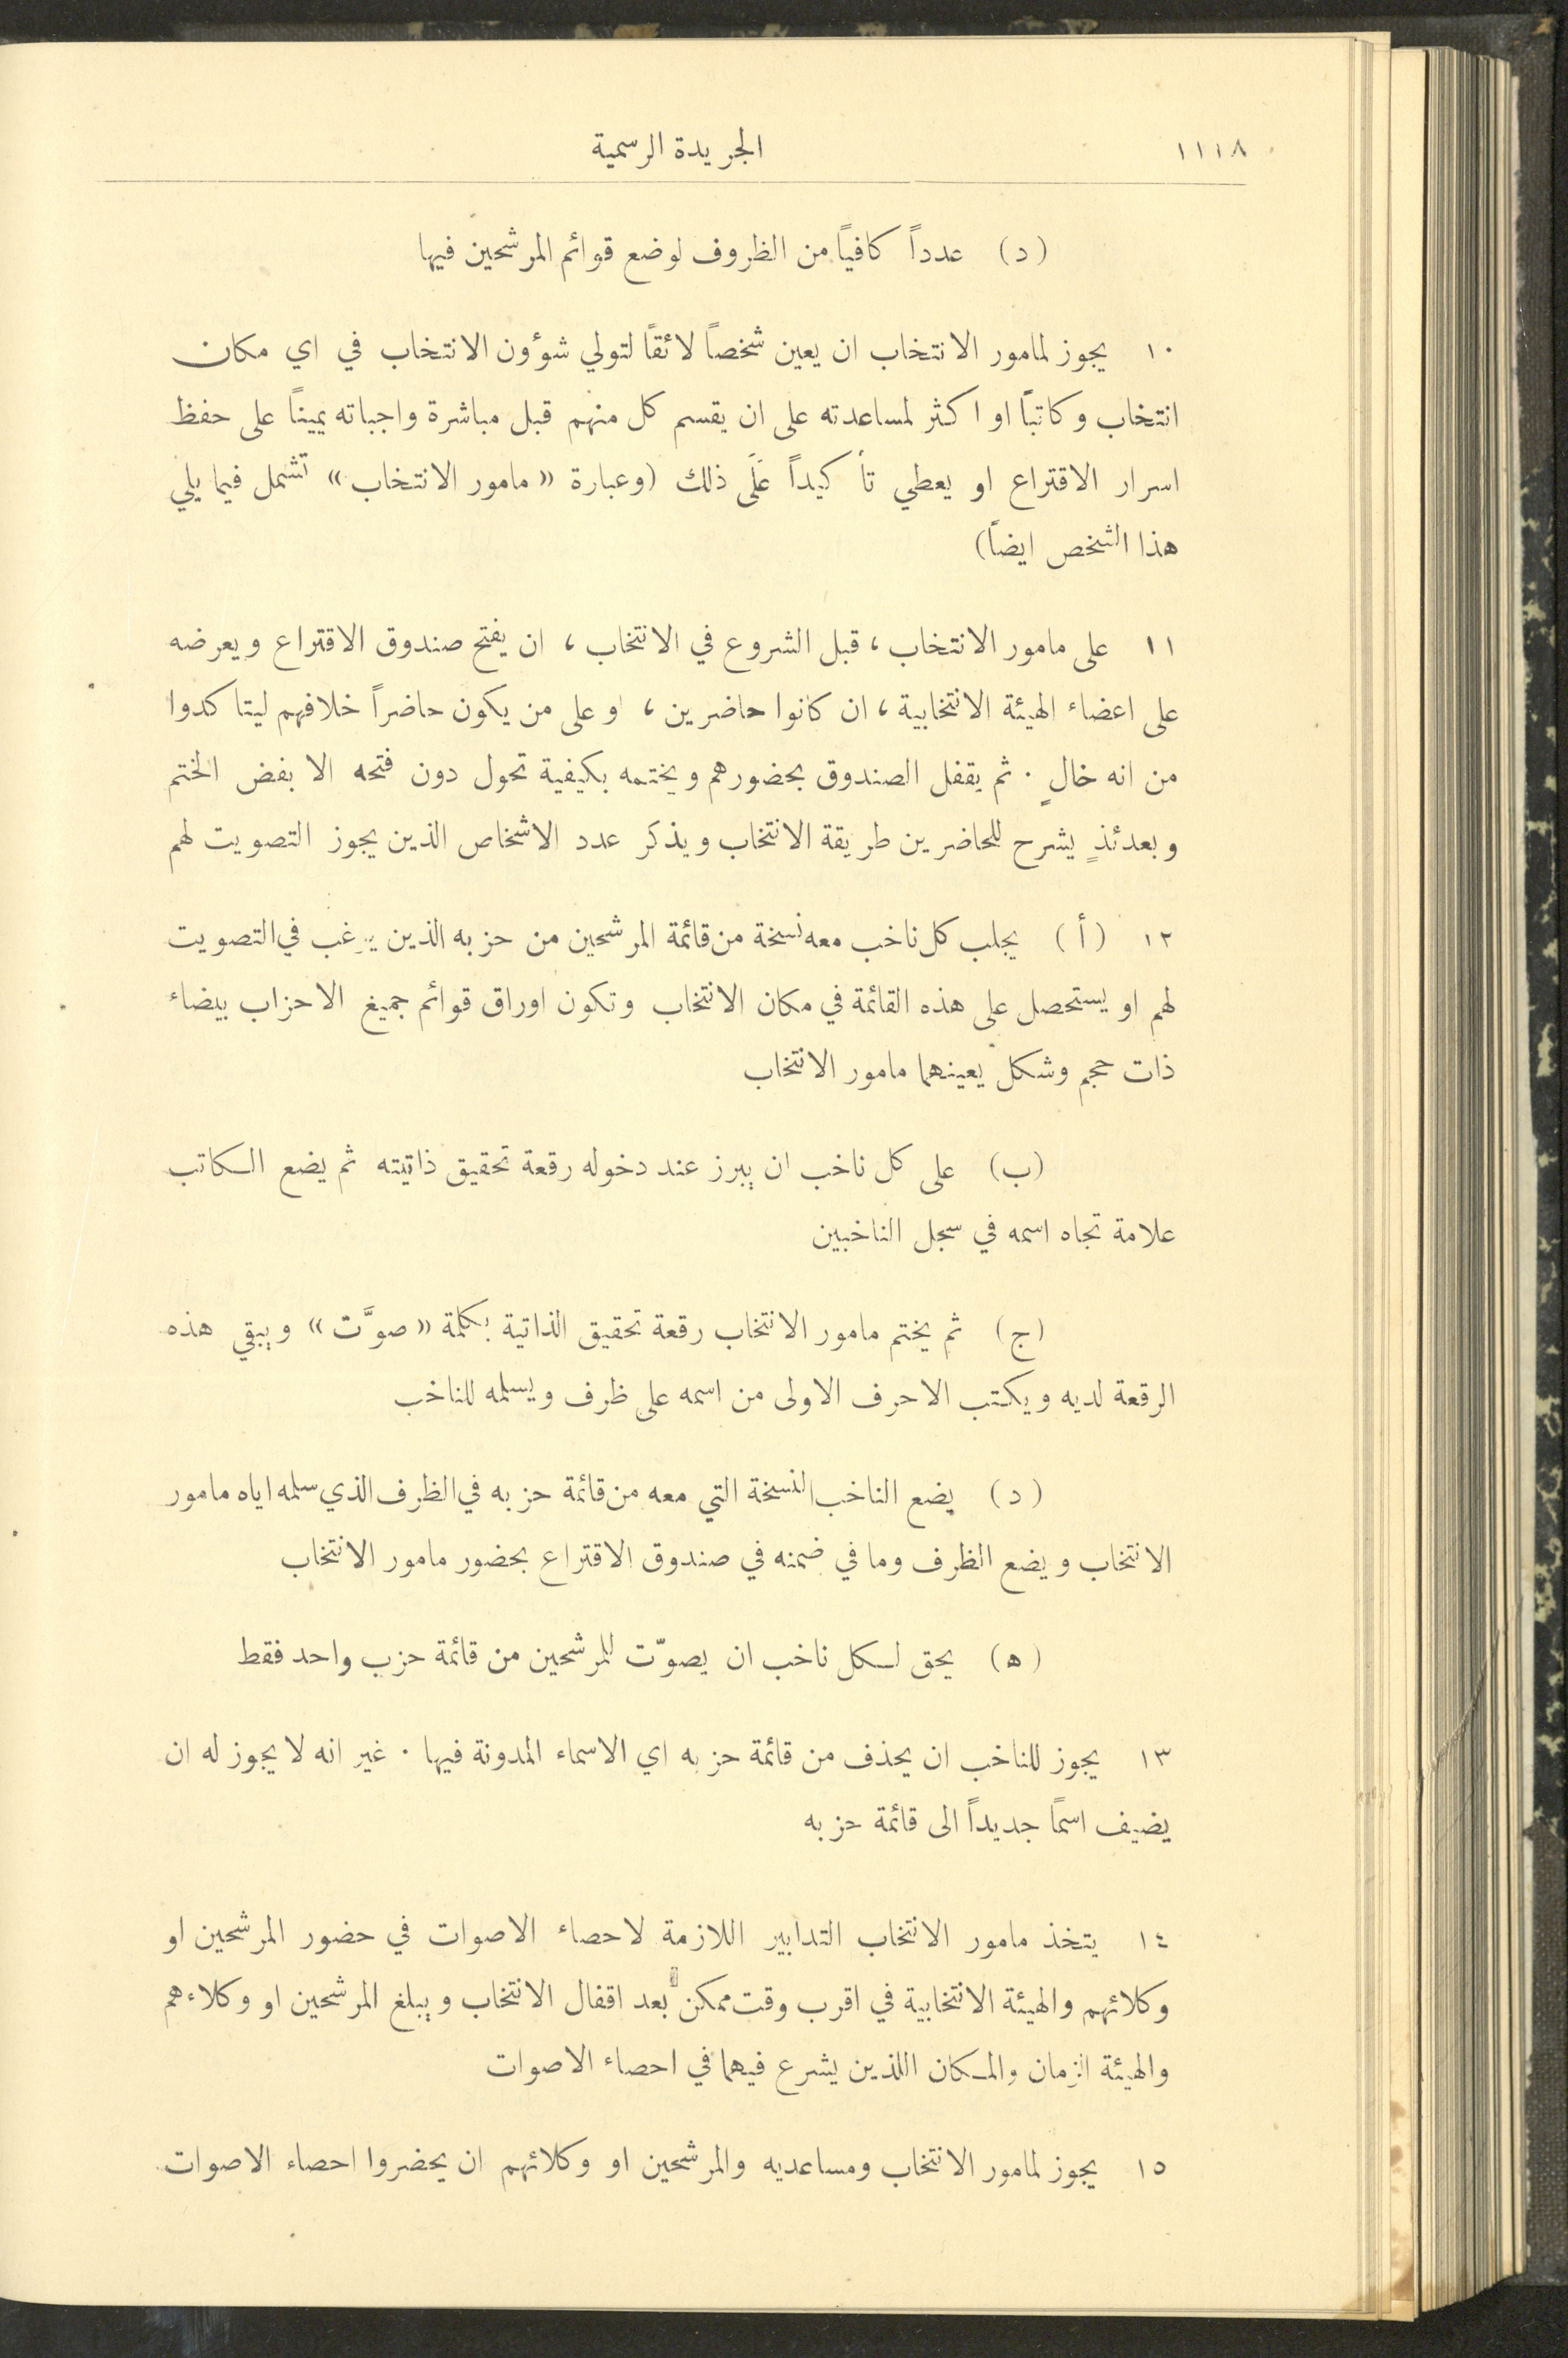 ١١١٨
الجريدة الرسمية
(د) عدداً كافياً من الظروف لوضع قوائم المرشحين فيها
١٠ يجوز لمامور الانتخاب ان يعين شخصاً لائقاً لتولي شؤون الانتخاب في اي مكان
انتخاب وكاتباً او اكثر لمساعدته على ان يقسم كل منهم قبل مباشرة واجباته يميناً على حفظ
اسرار الاقتراع او يعطي تأكيداً عَلَى ذلك (وعبارة «مامور الانتخاب» تشمل فيما يلي
هذا الشخص ايضاً)
١١ على مامور الانتخاب، قبل الشروع في الانتخاب، ان يفتح صندوق الاقتراع ويعرضه
على اعضاء الهيئة الانتخابية، ان كانوا حاضرين، او على من يكون حاضراً خلافهم ليتاكدوا
من انه خالٍ. ثم يقفل الصندوق بحضورهم ويختمه بكيفية تحول دون فتحه الا بفض الختم
وبعدئذٍ يشرح للحاضرين طريقة الانتخاب ويذكر عدد الاشخاص الذين يجوز التصويت لهم
١٢ (أ) يجلب كل ناخب معه نسخة من قائمة المرشحين من حزبه الذين يرغب في التصويت
لهم او يستحصل على هذه القائمة في مكان الانتخاب وتكون اوراق قوائم جميغ الاحزاب بيضاء
ذات حجم وشكل يعينهما مامور الانتخاب
(ب) على كل ناخب ان يبرز عند دخوله رقعة تحقيق ذاتيته ثم يضع الكاتب
علامة تجاه اسمه في سجل الناخبين
(ج) ثم يختم مامور الانتخاب رقعة تحقيق الذاتية بكلمة «صوَّت» ويبقي هذه
الرقعة لديه ويكتب الاحرف الاولى من اسمه على ظرف ويسلمه للناخب
(د) يضع الناخب النسخة التي معه من قائمة حزبه في الظرف الذي سلمه اياه مامور
الانتخاب ويضع الظرف وما في ضمنه في صندوق الاقتراع بحضور مامور الانتخاب
(ه) يحق لكل ناخب ان يصوّت للمرشحين من قائمة حزب واحد فقط
١٣ يجوز للناخب ان يحذف من قائمة حزبه اي الاسماء المدونة فيها. غير انه لا يجوز له ان
يضيف اسمًا جديداً الى قائمة حزبه
١٤ يتخذ مامور الانتخاب التدابير اللازمة لاحصاء الاصوات في حضور المرشحين او
وكلائهم والهيئة الانتخابية في اقرب وقت ممكن بعد اقفال الانتخاب ويبلغ المرشحين او وكلاءهم
والهيئة الزمان والمكان اللذين يشرع فيهما في احصاء الاصوات
١٥ يجوز لمامور الانتخاب ومساعديه والمرشحين او وكلائهم ان يحضروا احصاء الاصوات